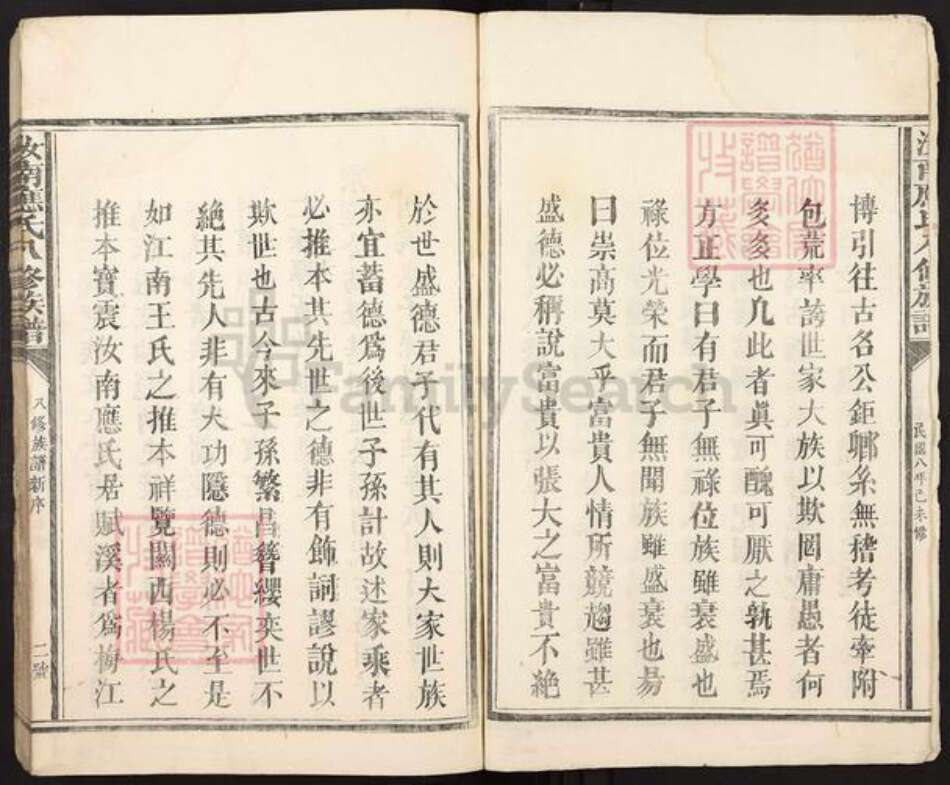 汝南應氏八修族譜
民國八年己未修
猶他家
譜學會
收藏
博引往古名公鉅卿系無稽考徒牽附
包荒率誇世家大族以欺罔庸愚者何
多多也凡此者眞可醜可厭之孰甚焉
方正學曰有君子無祿位族雖衰盛也
祿位光榮而君子無聞族雖盛衰也易
曰崇高莫大乎富貴人情所競趨雖甚
盛德必稱說富貴以張大之富貴不絕
於世盛德君子代有其人則大家世族
亦宜蓄德爲後世子孫計故述家乘者
必推本其先世之德非有飾詞謬說以
欺世也古今來子孫繁昌簪纓奕世不
絕其先人非有大功隱德則必不至是
如江南王氏之推本祥覽關西楊氏之
推本寶震汝南應氏居賦溪者爲梅江
猶他家
譜學會
收藏
汝南應氏八修族譜
八修族譜新序
二號
FamilySearch